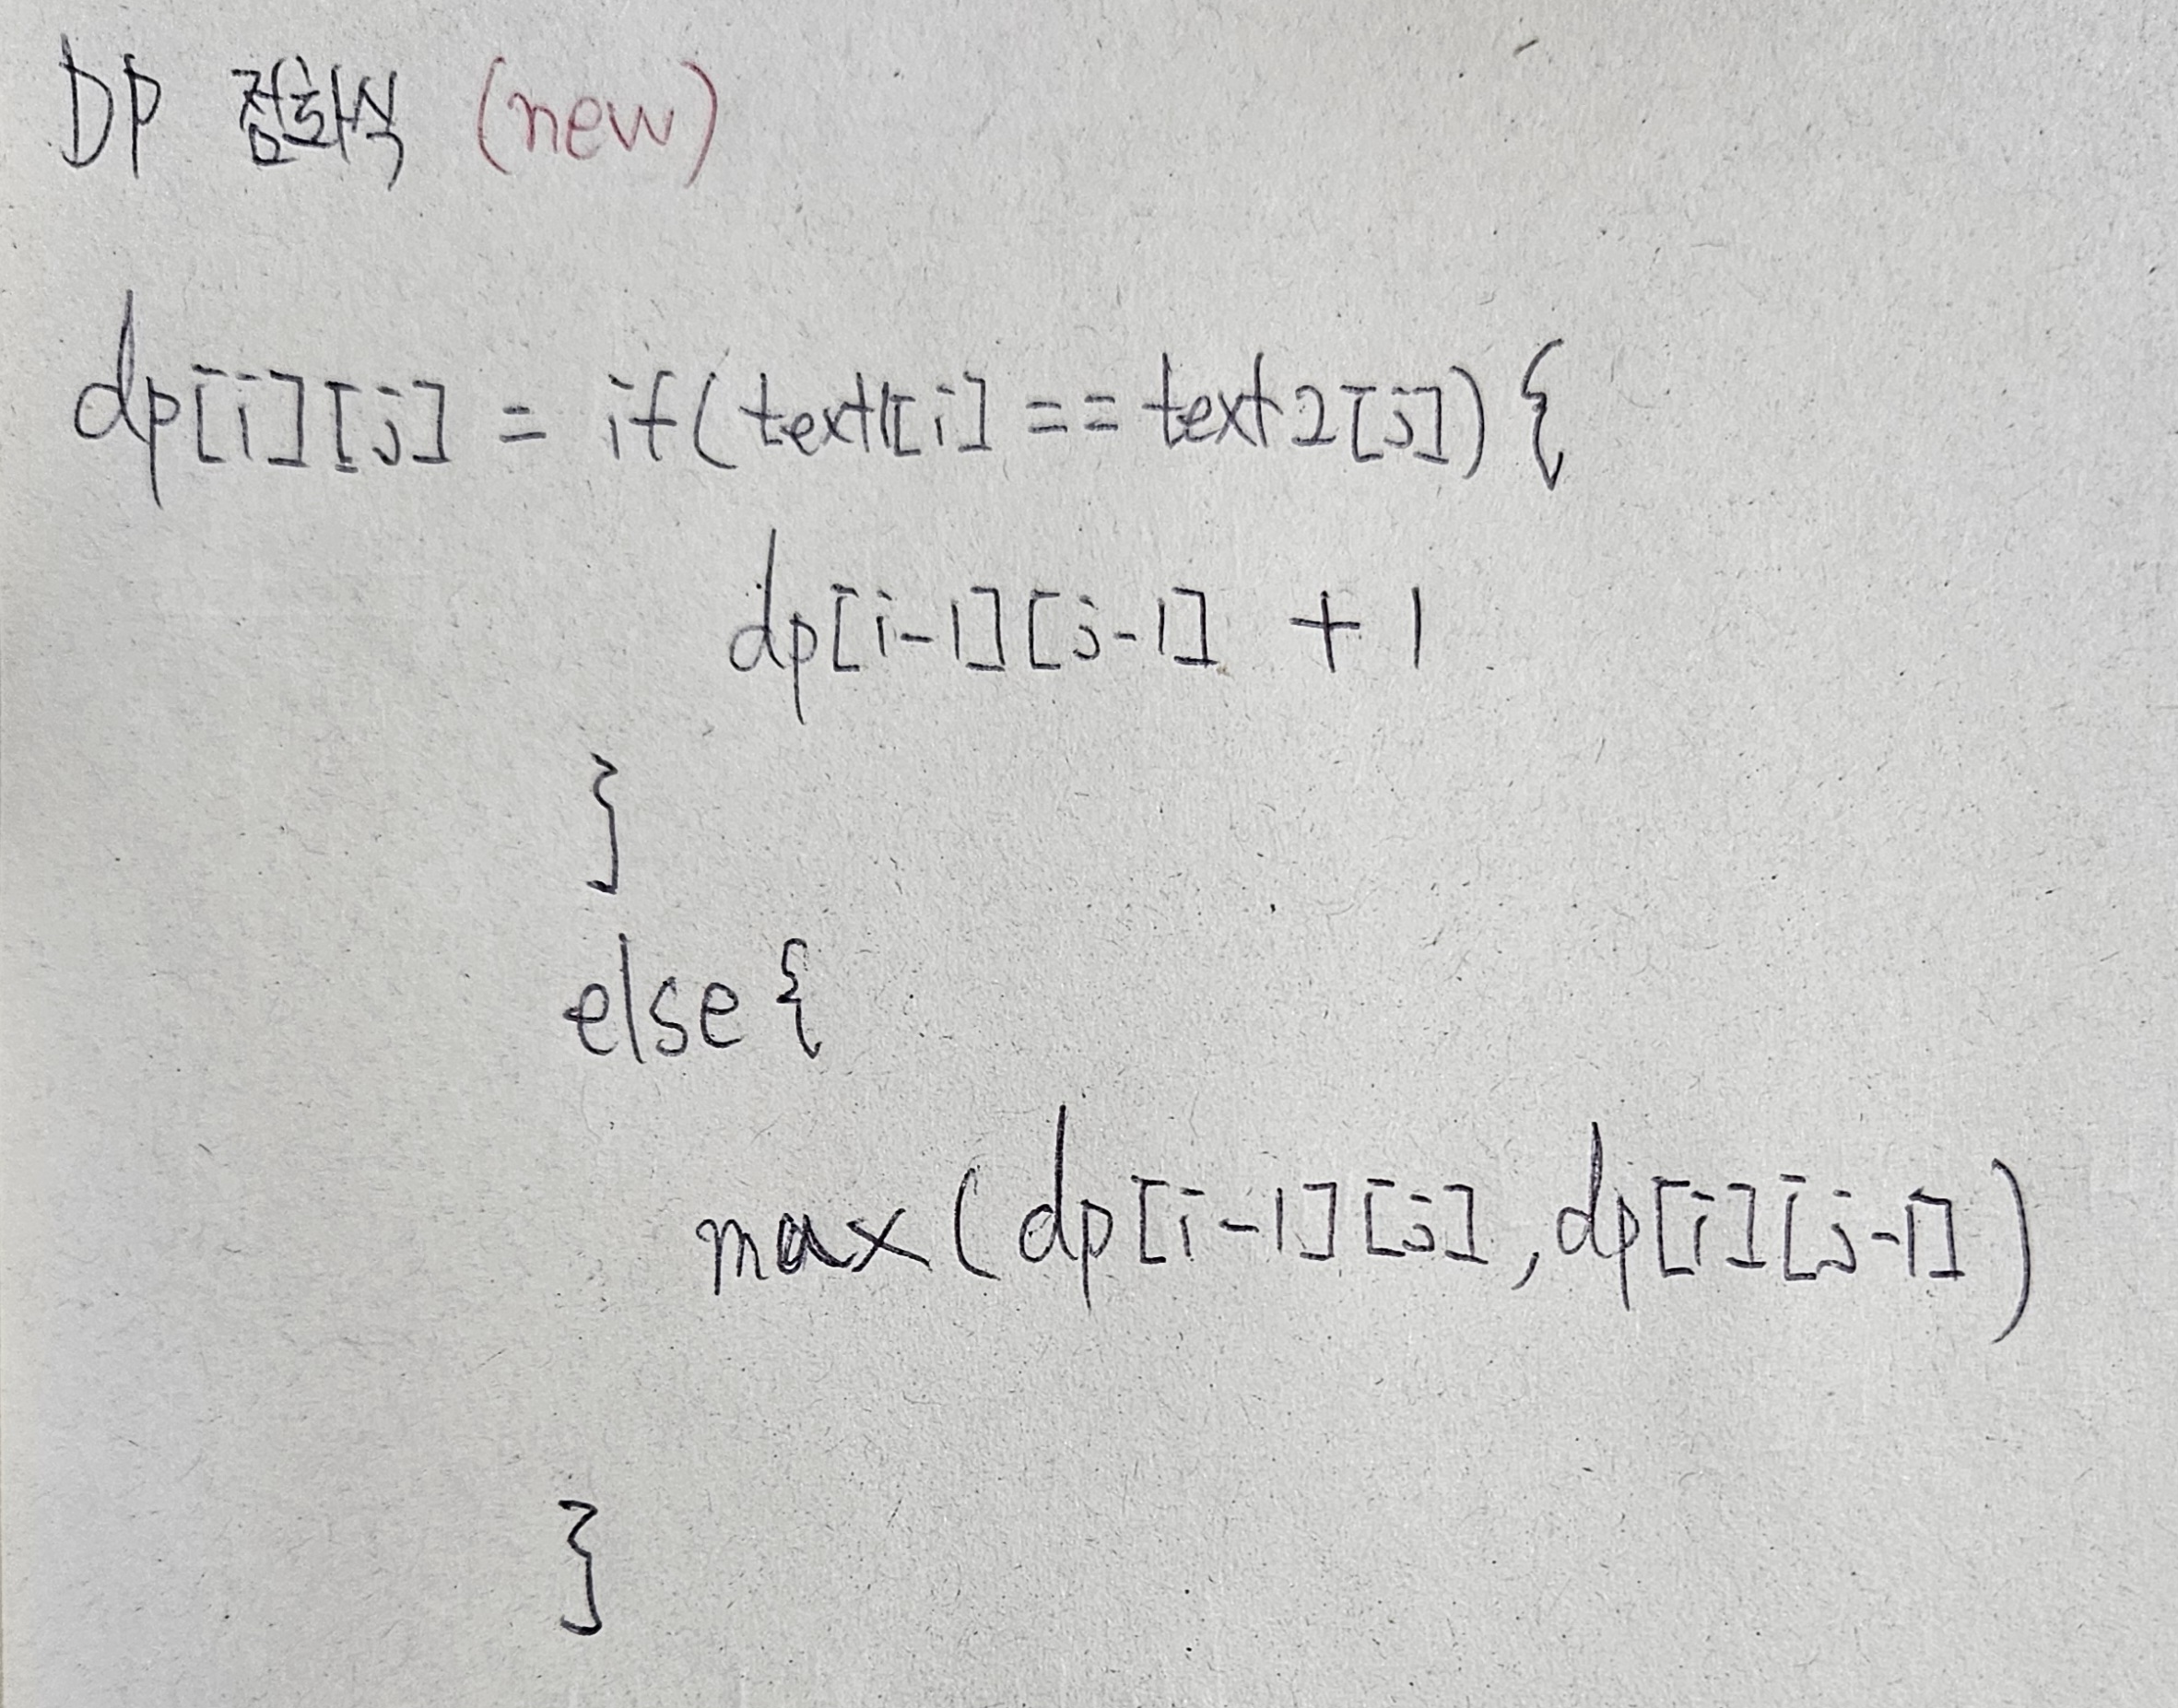 DP 점화식 (new)
dp[i][j] = if(text1[i] == text2[j]) {
dp[i-1][j-1] + 1
}
else {
max(dp[i-1][j], dp[i][j-1])
}